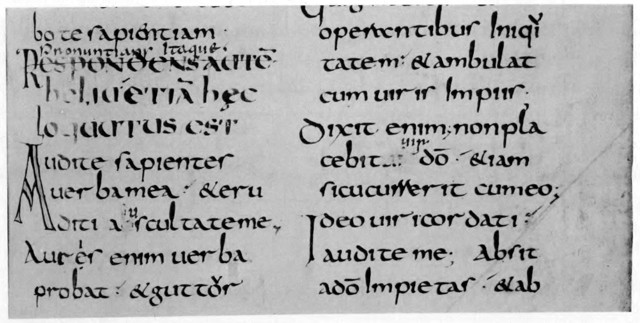 bo te sapientiam:
Pronuntians Itaque
RESPONDENS AUTĒ
heliu etiā hęc
locutus est
Audite sapientes
uerba mea · & eru
diti auscultate me,
Aures enim uerba
probat · & guttur
operantibus Iniqui
tatem: & ambulat
cum uiris Impiis:
Dixit enim; non pla
uir
cebit... dō · & iam
si cucurrerit cum eo;
Ideo uiri cordati:
audite me; Absit
a dō Impietas · & ab